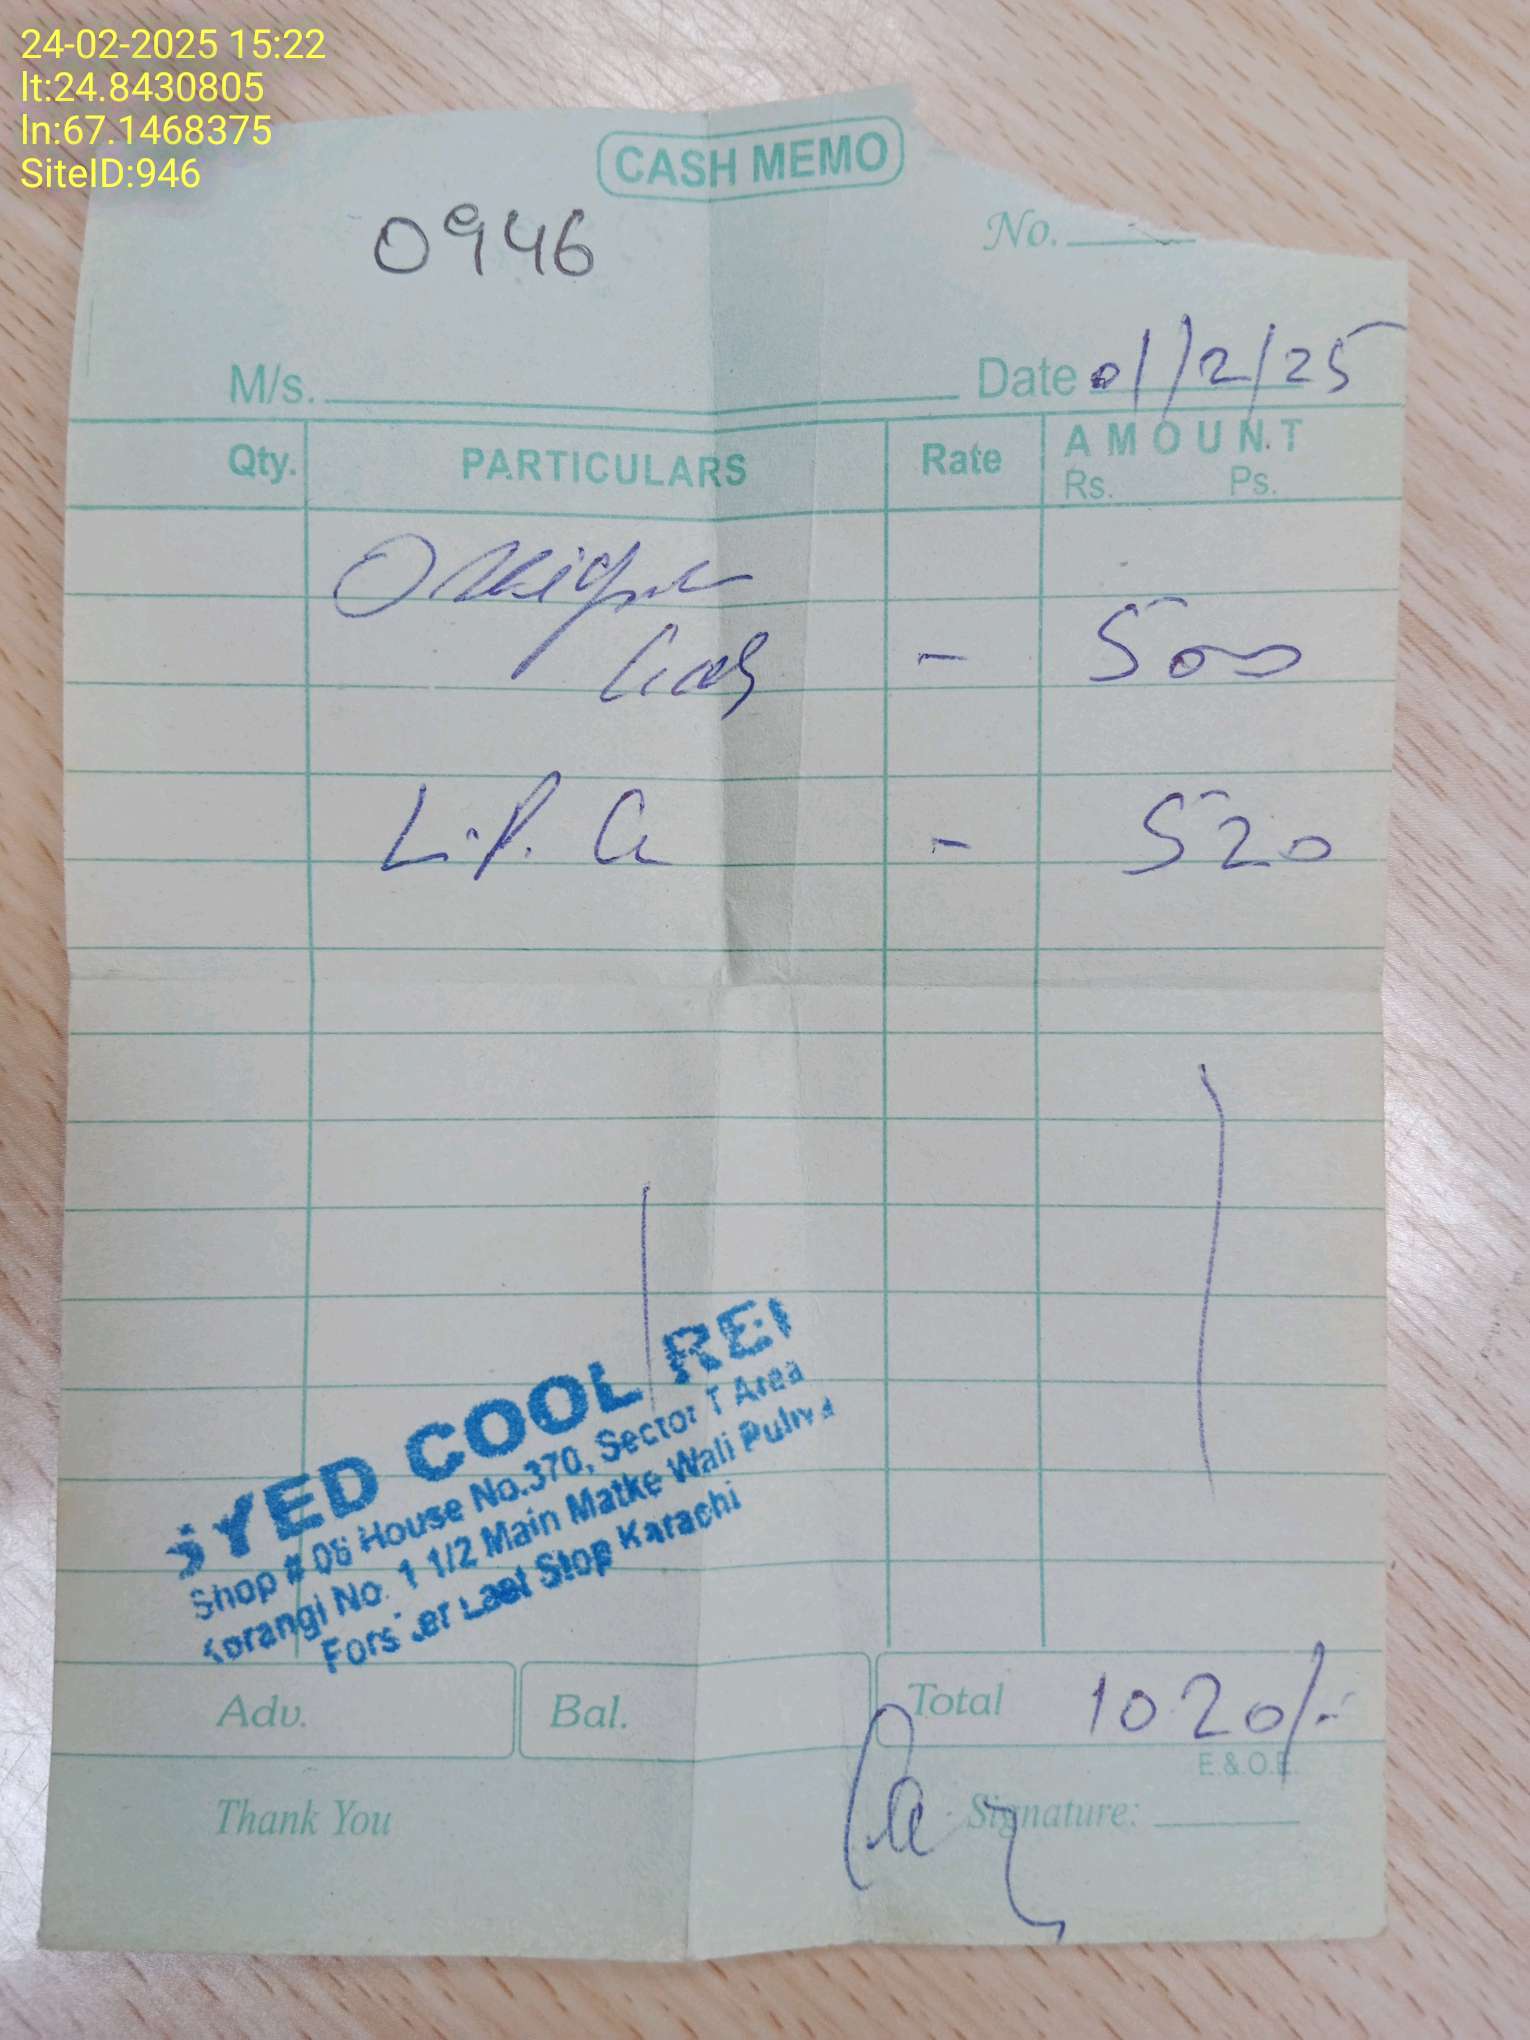 24-02-2025 15:22
lt:24.8430805
ln:67.1468375
SiteID:946
CASH MEMO
0946
No.
M/s.
Date 01/2/25
Qty. PARTICULARS Rate AMOUNT
Rs. Ps.
Gas - 500
L.P.G - 520
SYED COOL REF
Shop # 06 House No.370, Sector T Area
Korangi No. 1 1/2 Main Matke Wali Puliya
Last Stop Karachi
Adv. Bal. Total 1020/-
E.&.O.E.
Thank You Signature: